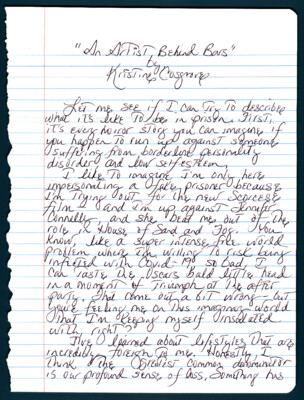 "An Artist Behind Bars"
by
Kristine Cosgrove
Let me see if I can try to describe
what it's like to be in prison. First,
it's every horror story you can imagine if
you happen to run up against someone
suffering from borderline personality
disorder and low self esteem.
I like to imagine I'm only here
impersonating a fake prisoner because
I'm trying out for the new Scorcese
film and I'm up against Jennifer
Connelly, and she beat me out of the
role in House of Sand and Fog. You
know, like a super intense free world
problem where I'm willing to risk being
infected with Covid-19 so bad I
can taste the Oscars bald little head
in a moment of triumph at the after
party. That came out a bit wrong - but
you're feeling me on this imaginary world
that I'm keeping myself insulated
with right?
I've learned about lifestyles that are
incredibly foreign to me. Honestly, I
think the greatest common denominator
is our profound sense of loss. Something has